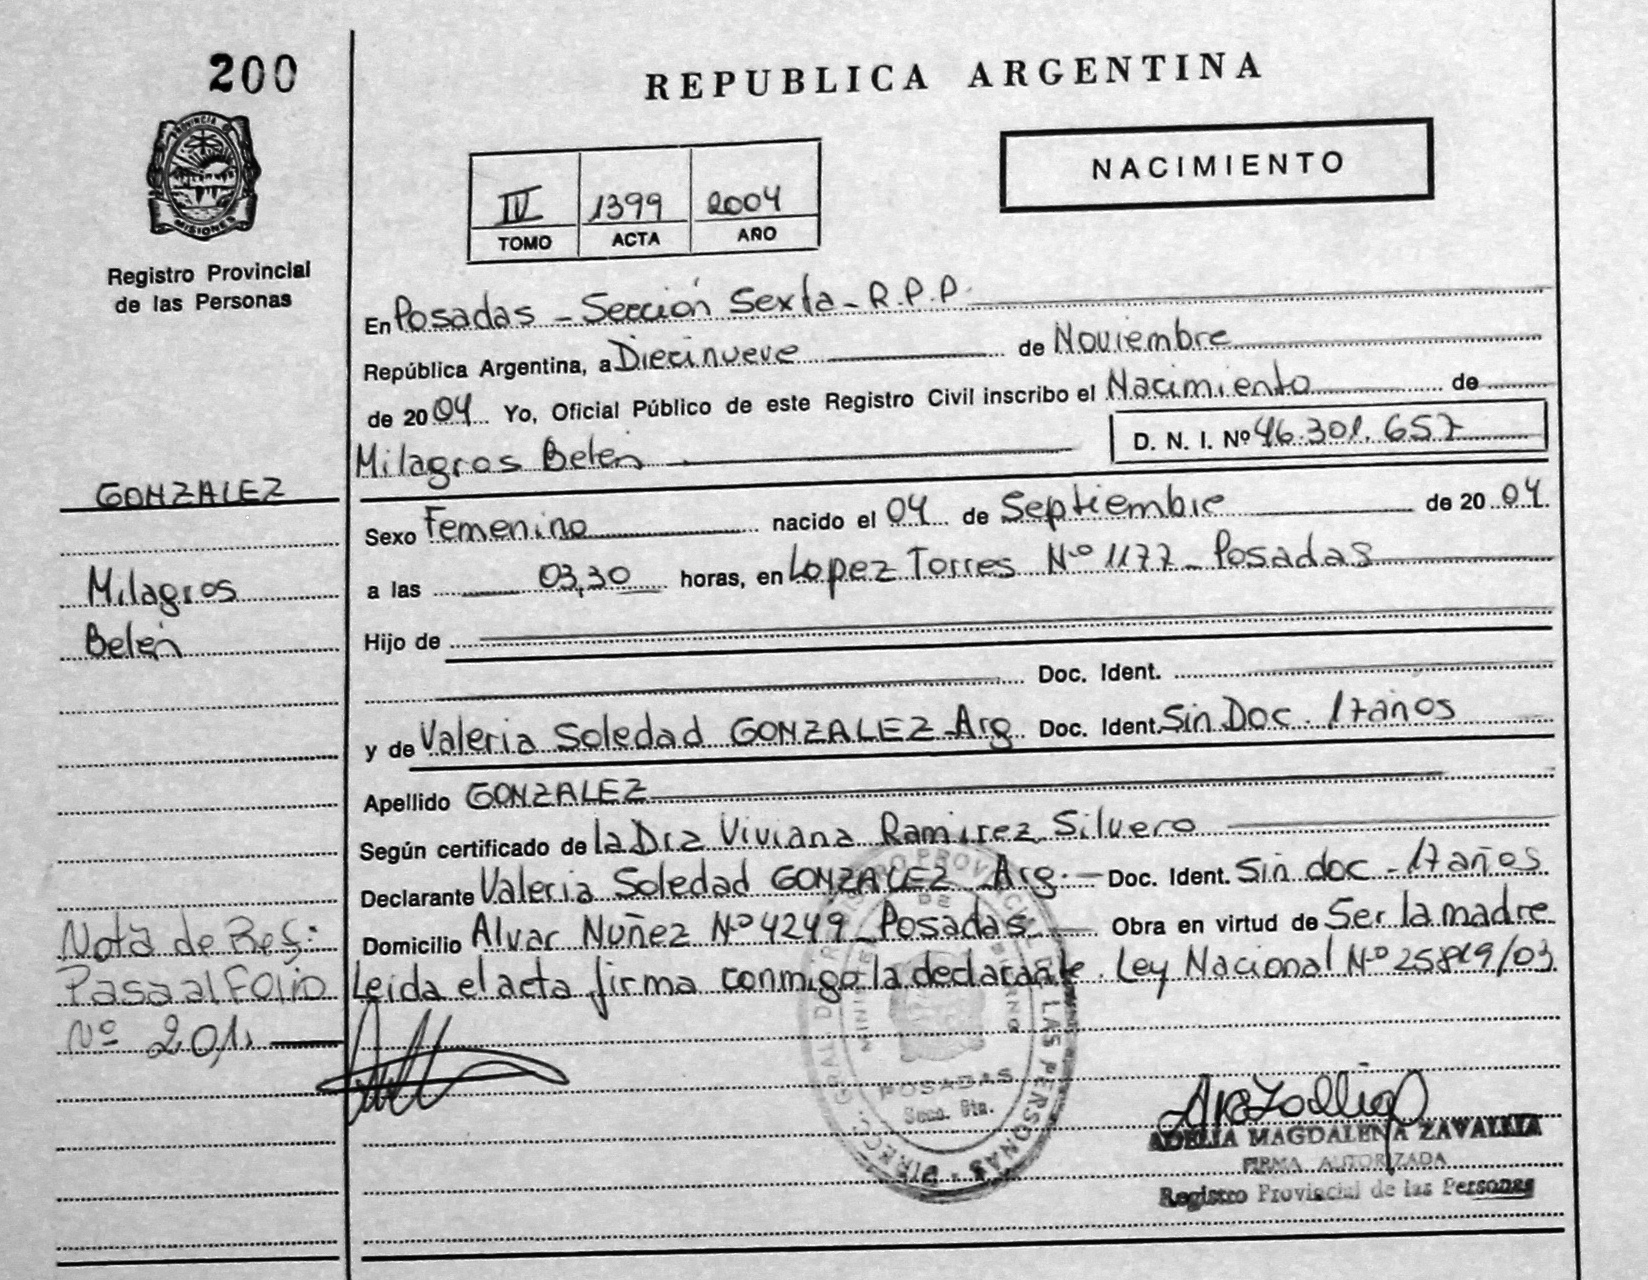 200
PROVINCIA D
MISIONES
Registro Provincial
de las Personas
REPUBLICA ARGENTINA
NACIMIENTO
IV 1399 2004
TOMO ACTA AÑO
En Posadas - Sección Sexta - R.P.P.
República Argentina, a Diecinueve de Noviembre
de 2004 Yo, Oficial Público de este Registro Civil inscribo el Nacimiento de
Milagros Belén D. N. I. Nº 46.301.657
GONZALEZ
Milagros
Belén
Sexo Femenino nacido el 04 de Septiembre de 2004.
a las 03,30 horas, en Lopez Torres Nº 1177 - Posadas
Hijo de
Doc. Ident.
y de Valeria Soledad GONZALEZ - Arg. Doc. Ident. Sin Doc. 17 años
Apellido GONZALEZ
Según certificado de la Dra Viviana Ramirez Silvero
Declarante Valeria Soledad GONZALEZ - Arg. - Doc. Ident. Sin doc - 17 años
Domicilio Alvar Nuñez Nº 4249 - Posadas - Obra en virtud de Ser la madre
Leída el acta firma conmigo la declarante. Ley Nacional Nº 25819/03
Nota de Ref:
Pasa al Folio
Nº 201.
DIRECC. GRAL. DEL REGISTRO PROVINCIAL DE LAS PERSONAS
MINISTERIO DE GOBIERNO
POSADAS
Secc. 6ta.
ADELIA MAGDALENA ZAVALLIA
FIRMA AUTORIZADA
Registro Provincial de las Personas